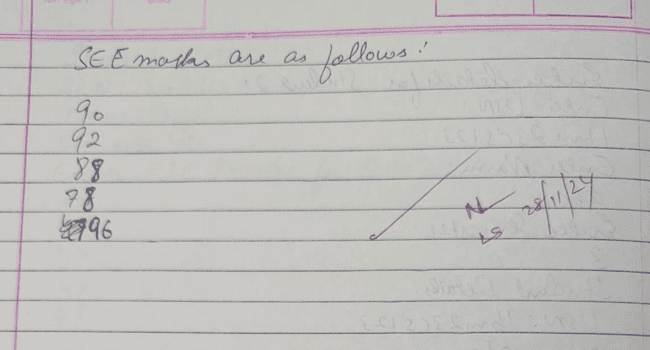 SEE marks are as follows:
90
92
88
78
96
28/11/24